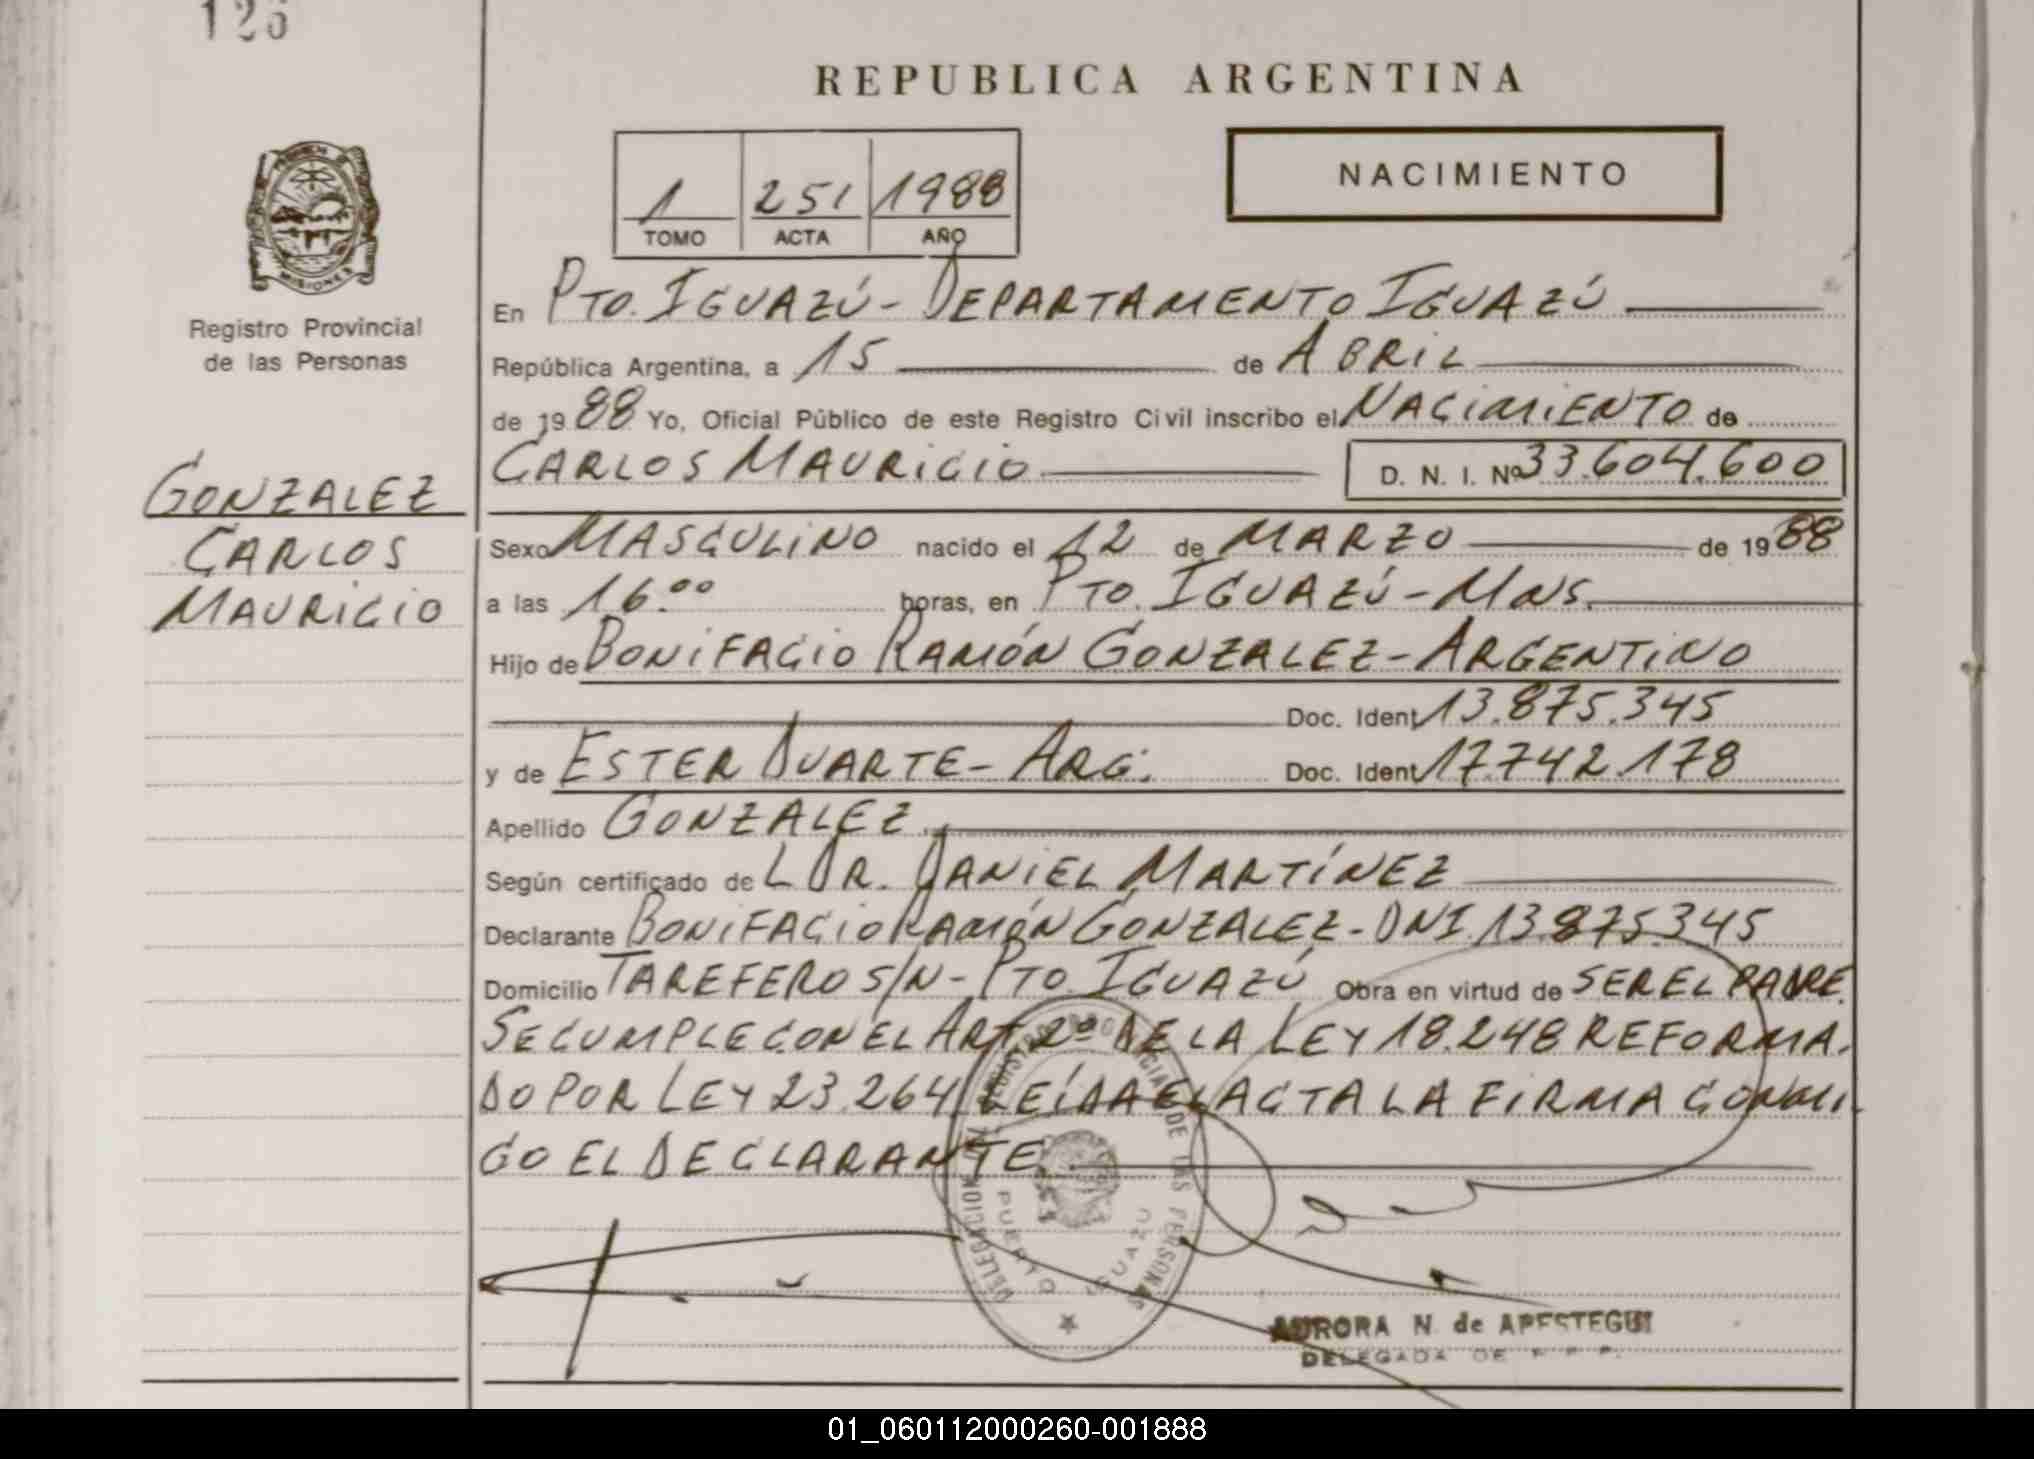 126
REPUBLICA ARGENTINA
1 251 1988
TOMO ACTA AÑO
NACIMIENTO
MISIONES
Registro Provincial
de las Personas
GONZALEZ
CARLOS
MAURICIO
En PTO. IGUAZÚ - DEPARTAMENTO IGUAZÚ
República Argentina, a 15 de ABRIL
de 1988 Yo, Oficial Público de este Registro Civil inscribo el NACIMIENTO de
CARLOS MAURICIO D. N. I. Nº 33.604.600
Sexo MASCULINO nacido el 12 de MARZO de 1988
a las 16.00 horas, en PTO. IGUAZÚ - MNS.
Hijo de BONIFACIO RAMÓN GONZALEZ - ARGENTINO
Doc. Ident 13.875.345
y de ESTER DUARTE - ARG. Doc. Ident 17.742.178
Apellido GONZALEZ
Según certificado de L DR. DANIEL MARTÍNEZ
Declarante BONIFACIO RAMÓN GONZALEZ - DNI. 13.875.345
Domicilio TAREFERO S/N - PTO. IGUAZÚ Obra en virtud de SER EL PADRE.
SE CUMPLE CON EL ART. 2º DE LA LEY 18.248 REFORMA-
DO POR LEY 23.264. LEÍDA EL ACTA LA FIRMA CONMI-
GO EL DECLARANTE
DELEGACION DEL REGISTRO PROVINCIAL DE LAS PERSONAS
PUERTO IGUAZU
AURORA N. de APESTEGUI
DELEGADA DE
01_060112000260-001888